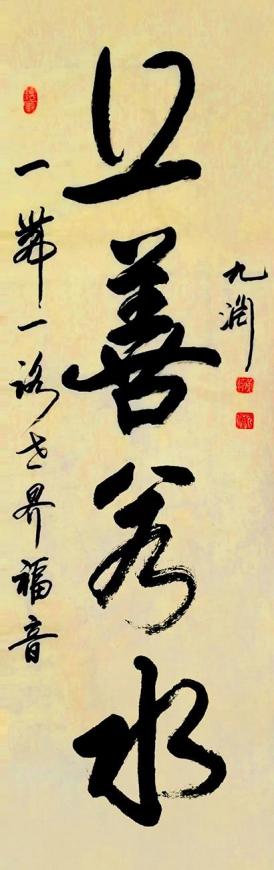 上善若水
九渊
一带一路世界福音